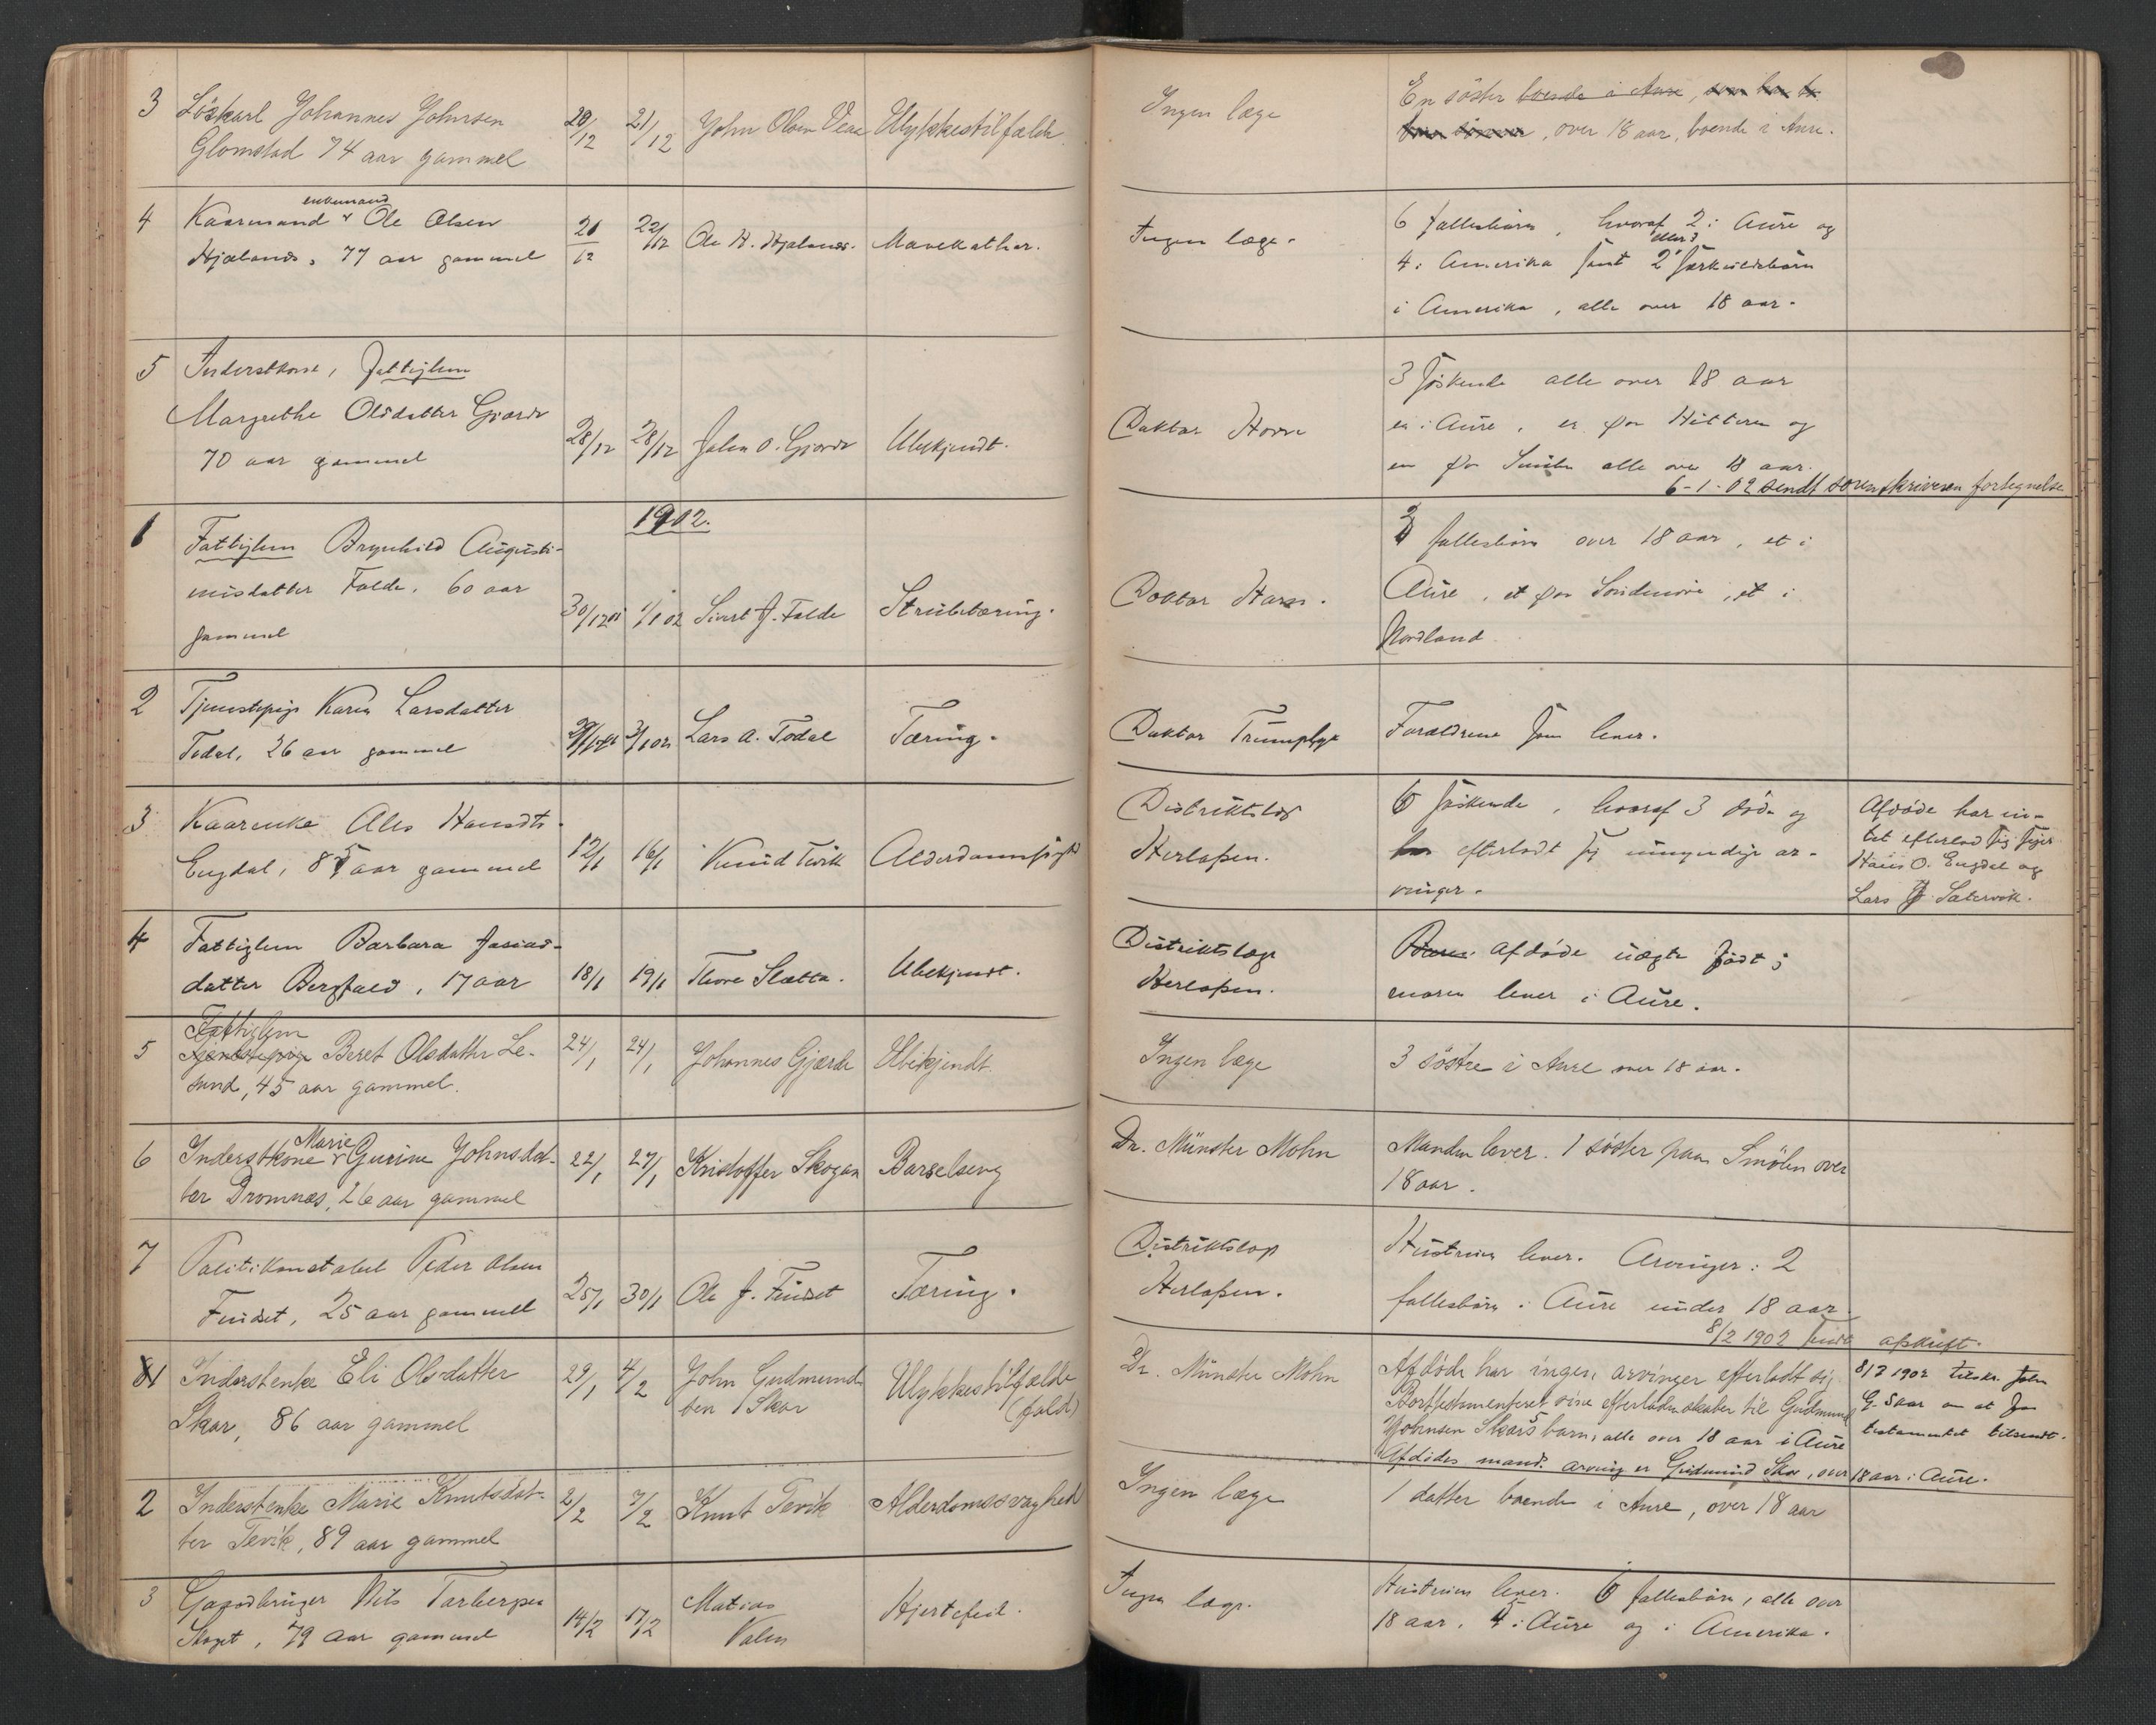 3 Löskarl Johannes Johnsen 20/12 21/12 John Olsen Ulykkestilfælde Ingen læge En söster boende i Aure, som har
Glomstad 74 aar gammel , over 18 aar, boende i Aure.
enkemand
4 Kaarmand Ole Olsen 21/12 22/12 Ole H. Hjælmø. Mavekathar. Ingen læge. 6 fællesbörn, hvoraf 2 i Aure og
eller 3
77 aar gammel 4 i Amerika samt 2 særkuldsbörn
i Amerika, alle over 18 aar.
5 Inderstkone, Fattiglem 3 söskende alle over 18 aar
Margrethe Olsdatter Gjærde 28/12 28/12 John O. Gjærde Ubekjendt. Doktor en i Aure, en paa Hitteren og
70 aar gammel en paa Smölen alle over 18 aar.
6-1-02 sendt sorenskriveren fortegnelse
1902.
1 Fattiglem Brynhild Augusti- 3 fællesbörn over 18 aar, et i
nusdatter Folde, 60 aar 30/12 01 1/1 02 Sivert J. Folde Strubetæring. Doktor Aure, et paa Söndmöre, et i
gammel Nordland
2 Tjenestepige Karen Larsdatter
Todal, 26 aar gammel 3/1 02 Lars A. Todal Tæring. Doktor Forældrene som lever.
3 Kaarenke Ales Hansdtr. Distriktslæge 6 söskende, hvoraf 3 döde og Afdöde har in-
Engdal, 85 aar gammel 12/1 16/1 Knud Tevik Alderdomssvaghed Herlofsen. har efterladt sig umyndige ar- tet efterlad sig siger
vinger. Hans O. Engdal og
Lars Sætervik.
4 Fattiglem Barbara Josias- Distriktslæge afdöde uægte födt;
datter Bergfald, 17 aar 18/1 19/1 Thore Slætta. Ubekjendt. Herlofsen. moren lever i Aure.
Fattiglem
5 Tjenestepige Beret Olsdatter Le- 24/1 24/1 Johannes Gjærde Ubekjendt. Ingen læge 3 söstre i Aure over 18 aar.
sund, 45 aar gammel.
Marie
6 Inderstkone Gurine Johnsdat- 22/1 27/1 Kristoffer Skogan Barselseng Dr. Münster Mohn Manden lever. 1 söster paa Smölen over
ter Dromnes, 26 aar gammel 18 aar.
7 Politikonstabel Peder Olsen Distriktslæge Hustruen lever. Arvinger: 2
Finset, 25 aar gammel 25/1 30/1 Ole J. Finset Tæring. Herlofsen. fællesbörn i Aure under 18 aar.
8/2 1902 sendt afskrift.
1 Inderstenke Eli Olsdatter 29/1 4/2 John Gudmund- Ulykkestilfælde Dr. Münster Mohn Afdöde har ingen arvinger efterladt sig. 8/2 1902 tilskr. John
Skar, 86 aar gammel sen Skar (fald) Borttestamenteret sine efterladenskaber til Gudmund G. Skar om at faa
Johnsen Skars 5 barn, alle over 18 aar i Aure testamentet tilsendt.
Afdödes mands arving er Gudmund Skar, over 18 aar i Aure.
2 Inderstenke Marie Knutsdat- 2/2 7/2 Knut Tevik Alderdomssvaghed Ingen læge 1 datter boende i Aure, over 18 aar
ter Tevik, 89 aar gammel
3 Gaardbruger Nils Torbergsen 14/2 17/2 Matias Hjertefeil. Ingen læge. Hustruen lever. 6 fællesbörn, alle over
79 aar gammel Valen 18 aar, 5 i Aure og i Amerika.